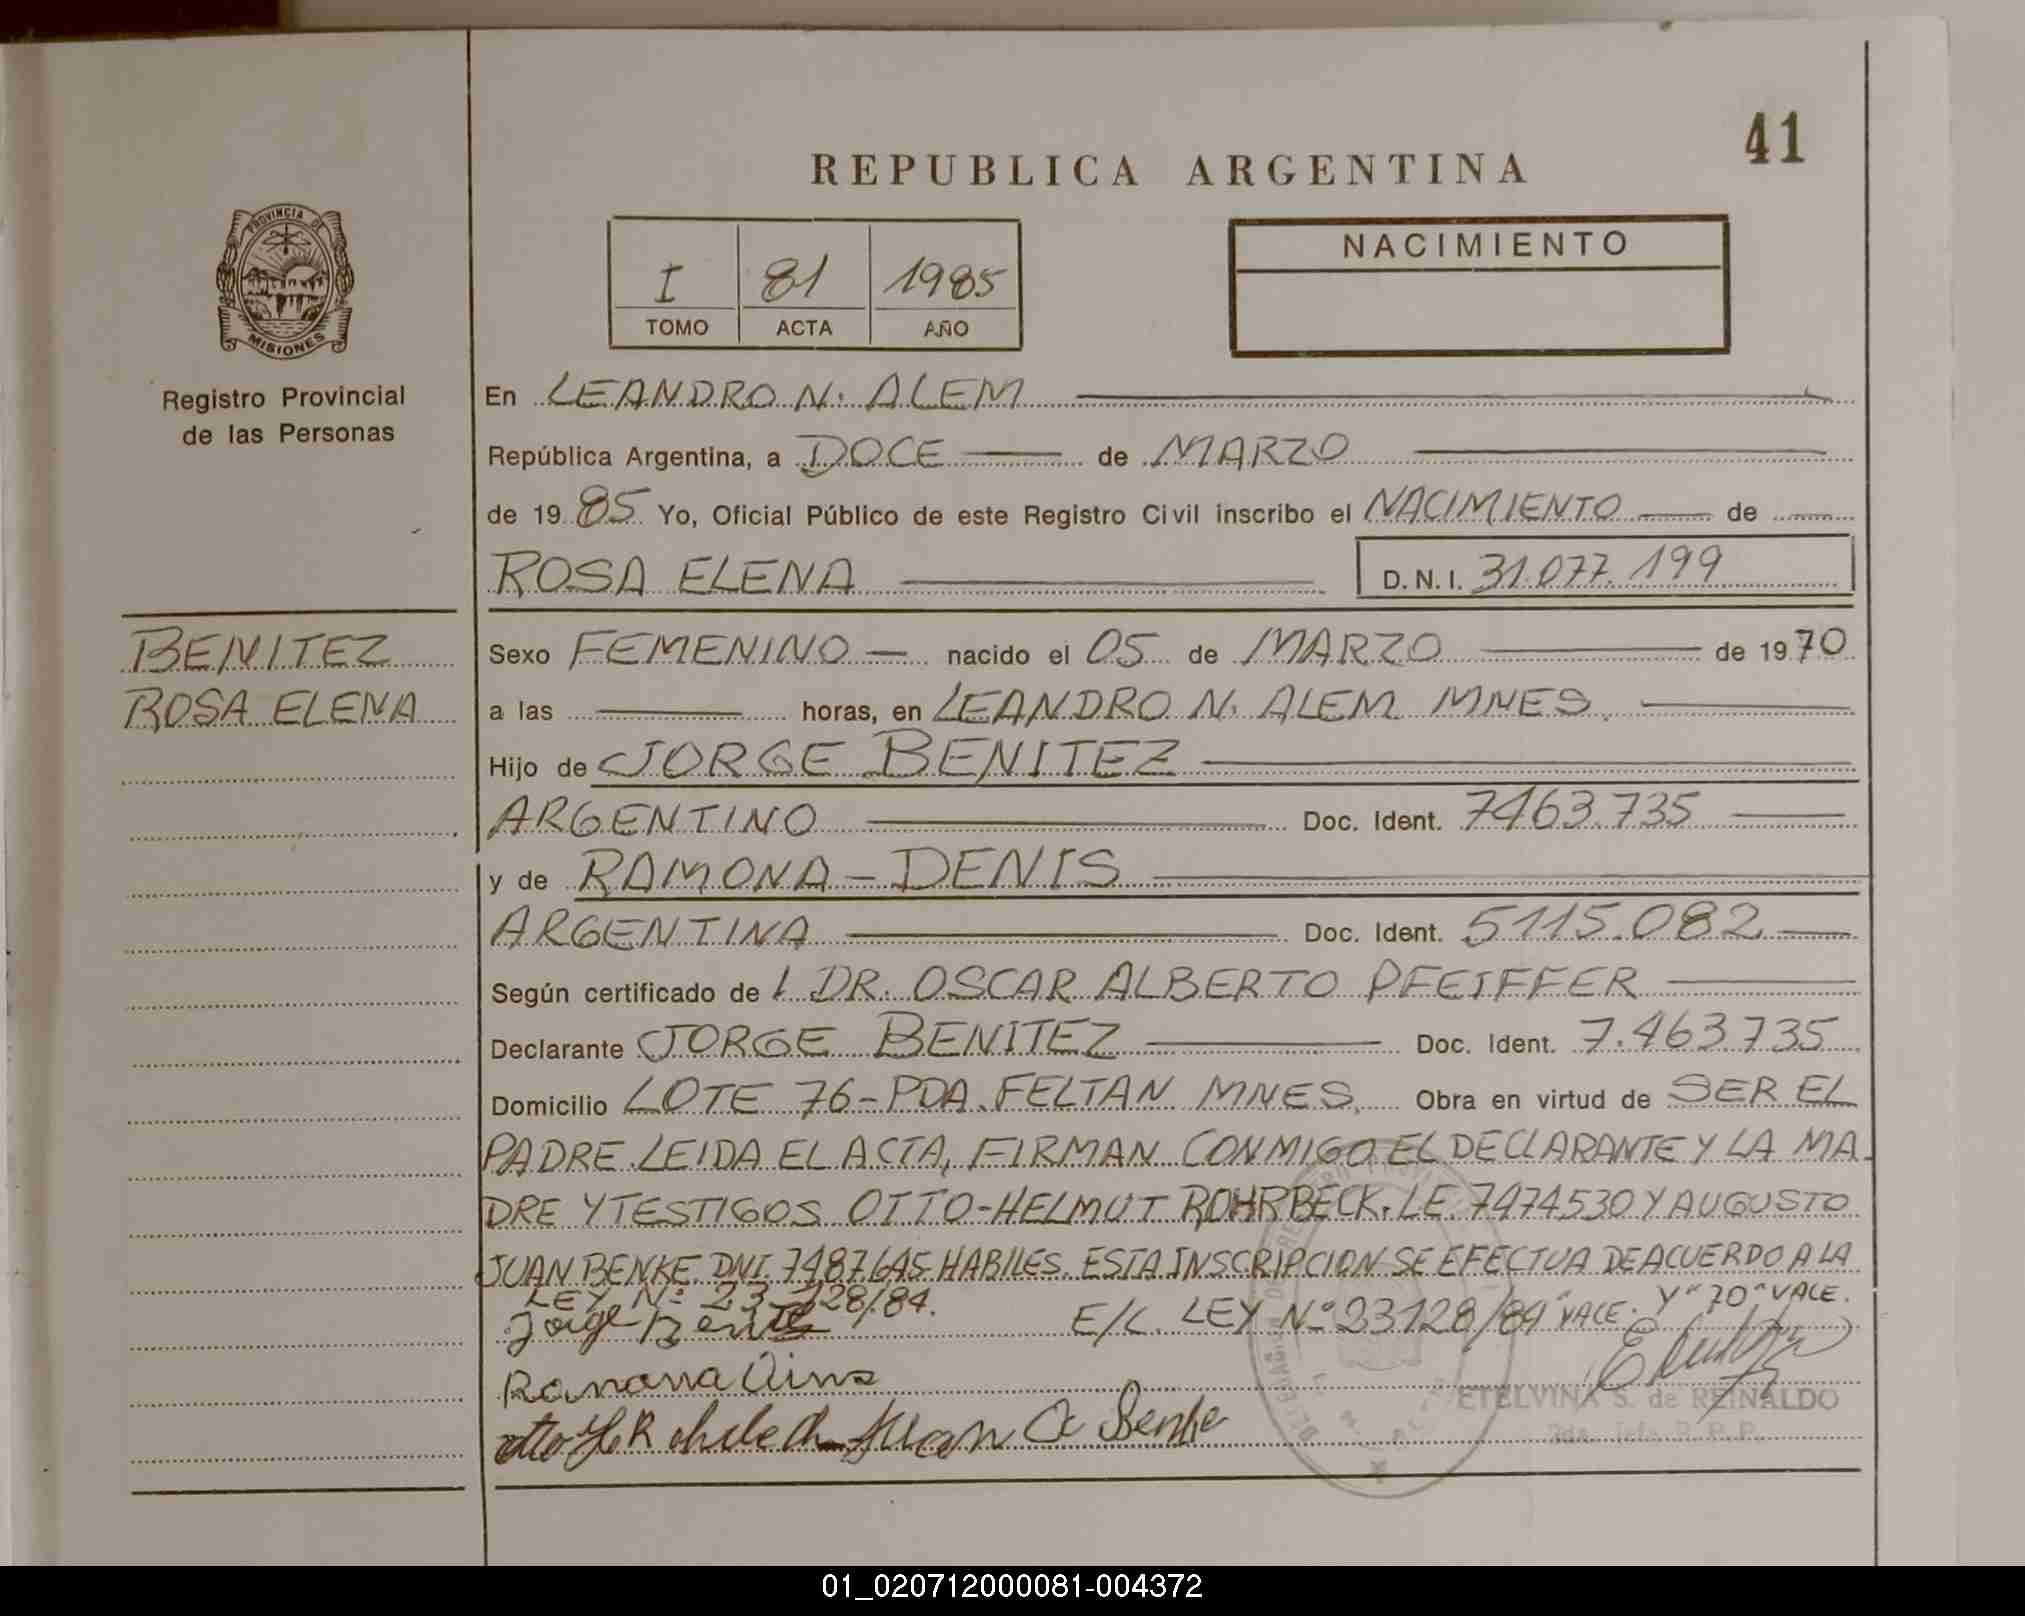 41
REPUBLICA ARGENTINA
PROVINCIA DE
MISIONES
Registro Provincial
de las Personas
I 81 1985
TOMO ACTA AÑO
NACIMIENTO
En LEANDRO N. ALEM
República Argentina, a DOCE de MARZO
de 1985 Yo, Oficial Público de este Registro Civil inscribo el NACIMIENTO de
ROSA ELENA D.N.I. 31.077.199
BENITEZ
ROSA ELENA
Sexo FEMENINO nacido el 05 de MARZO de 1970
a las horas, en LEANDRO N. ALEM MNES.
Hijo de JORGE BENITEZ
ARGENTINO Doc. Ident. 7463.735
y de RAMONA - DENIS
ARGENTINA Doc. Ident. 5115.082
Según certificado de DR. OSCAR ALBERTO PFEIFFER
Declarante JORGE BENITEZ Doc. Ident. 7.463.735
Domicilio LOTE 76-PDA. FELTAN MNES. Obra en virtud de SER EL
PADRE. LEIDA EL ACTA, FIRMAN CONMIGO EL DECLARANTE Y LA MA-
DRE Y TESTIGOS OTTO-HELMUT ROHRBECK. LE. 7474530 Y AUGUSTO
JUAN BENKE. DNI. 7487645 HABILES. ESTA INSCRIPCION SE EFECTUA DE ACUERDO A LA
LEY Nº 23.128/84.
E/L. LEY Nº 23128/84 "VALE. Y "70" VALE.
Jorge Benitez
Ramona
Juan A Benke
ETELVINA S. de REINALDO
01_020712000081-004372